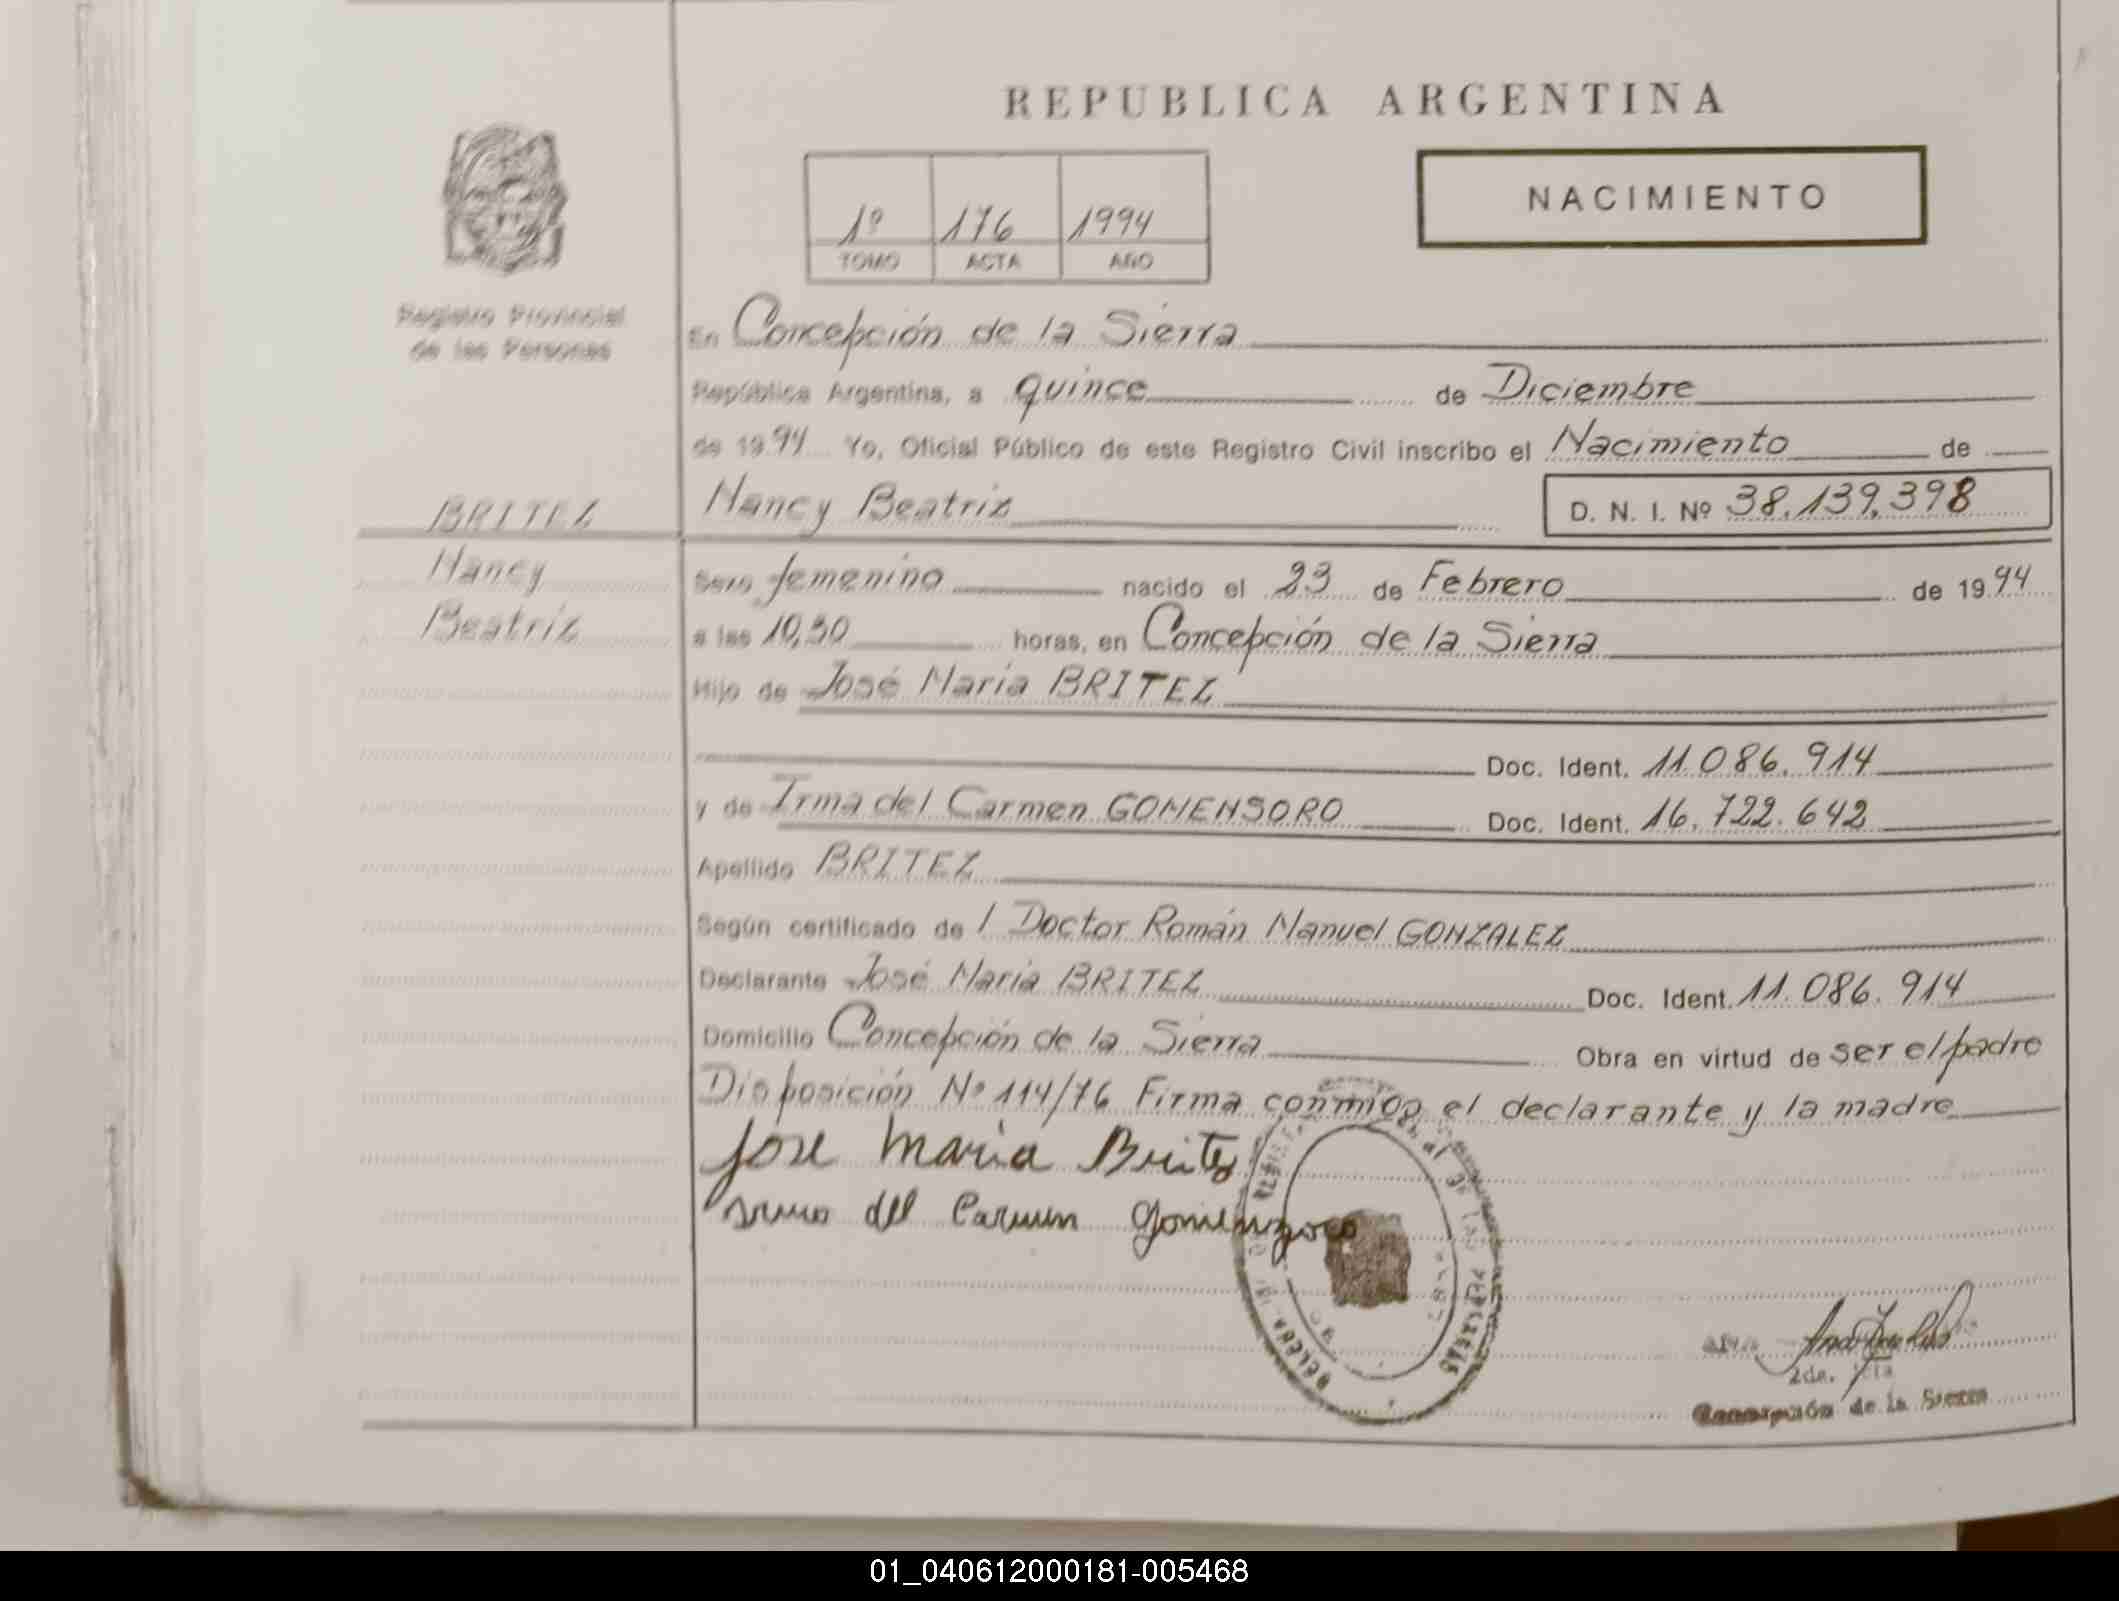 REPUBLICA ARGENTINA
NACIMIENTO
1º 176 1994
TOMO ACTA AÑO
Registro Provincial
de las Personas
En Concepción de la Sierra
República Argentina, a quince de Diciembre
de 1994 Yo, Oficial Público de este Registro Civil inscribo el Nacimiento de
BRITEZ
Nancy
Beatriz
Nancy Beatriz D. N. I. Nº 38.139.398
Sexo femenino nacido el 23 de Febrero de 1994
a las 10,30 horas, en Concepción de la Sierra
Hijo de José María BRITEZ
Doc. Ident. 11.086.914
y de Irma del Carmen GOMENSORO Doc. Ident. 16.722.642
Apellido BRITEZ
Según certificado del Doctor Román Manuel GONZALEZ
Declarante José María BRITEZ Doc. Ident. 11.086.914
Domicilio Concepción de la Sierra Obra en virtud de ser el padre
Disposición Nº 114/76 Firma conmigo el declarante y la madre
José María Britez
Irma del Carmen Gomenzoro
DE LAS PERSONAS
Concepción de la Sierra
01_040612000181-005468